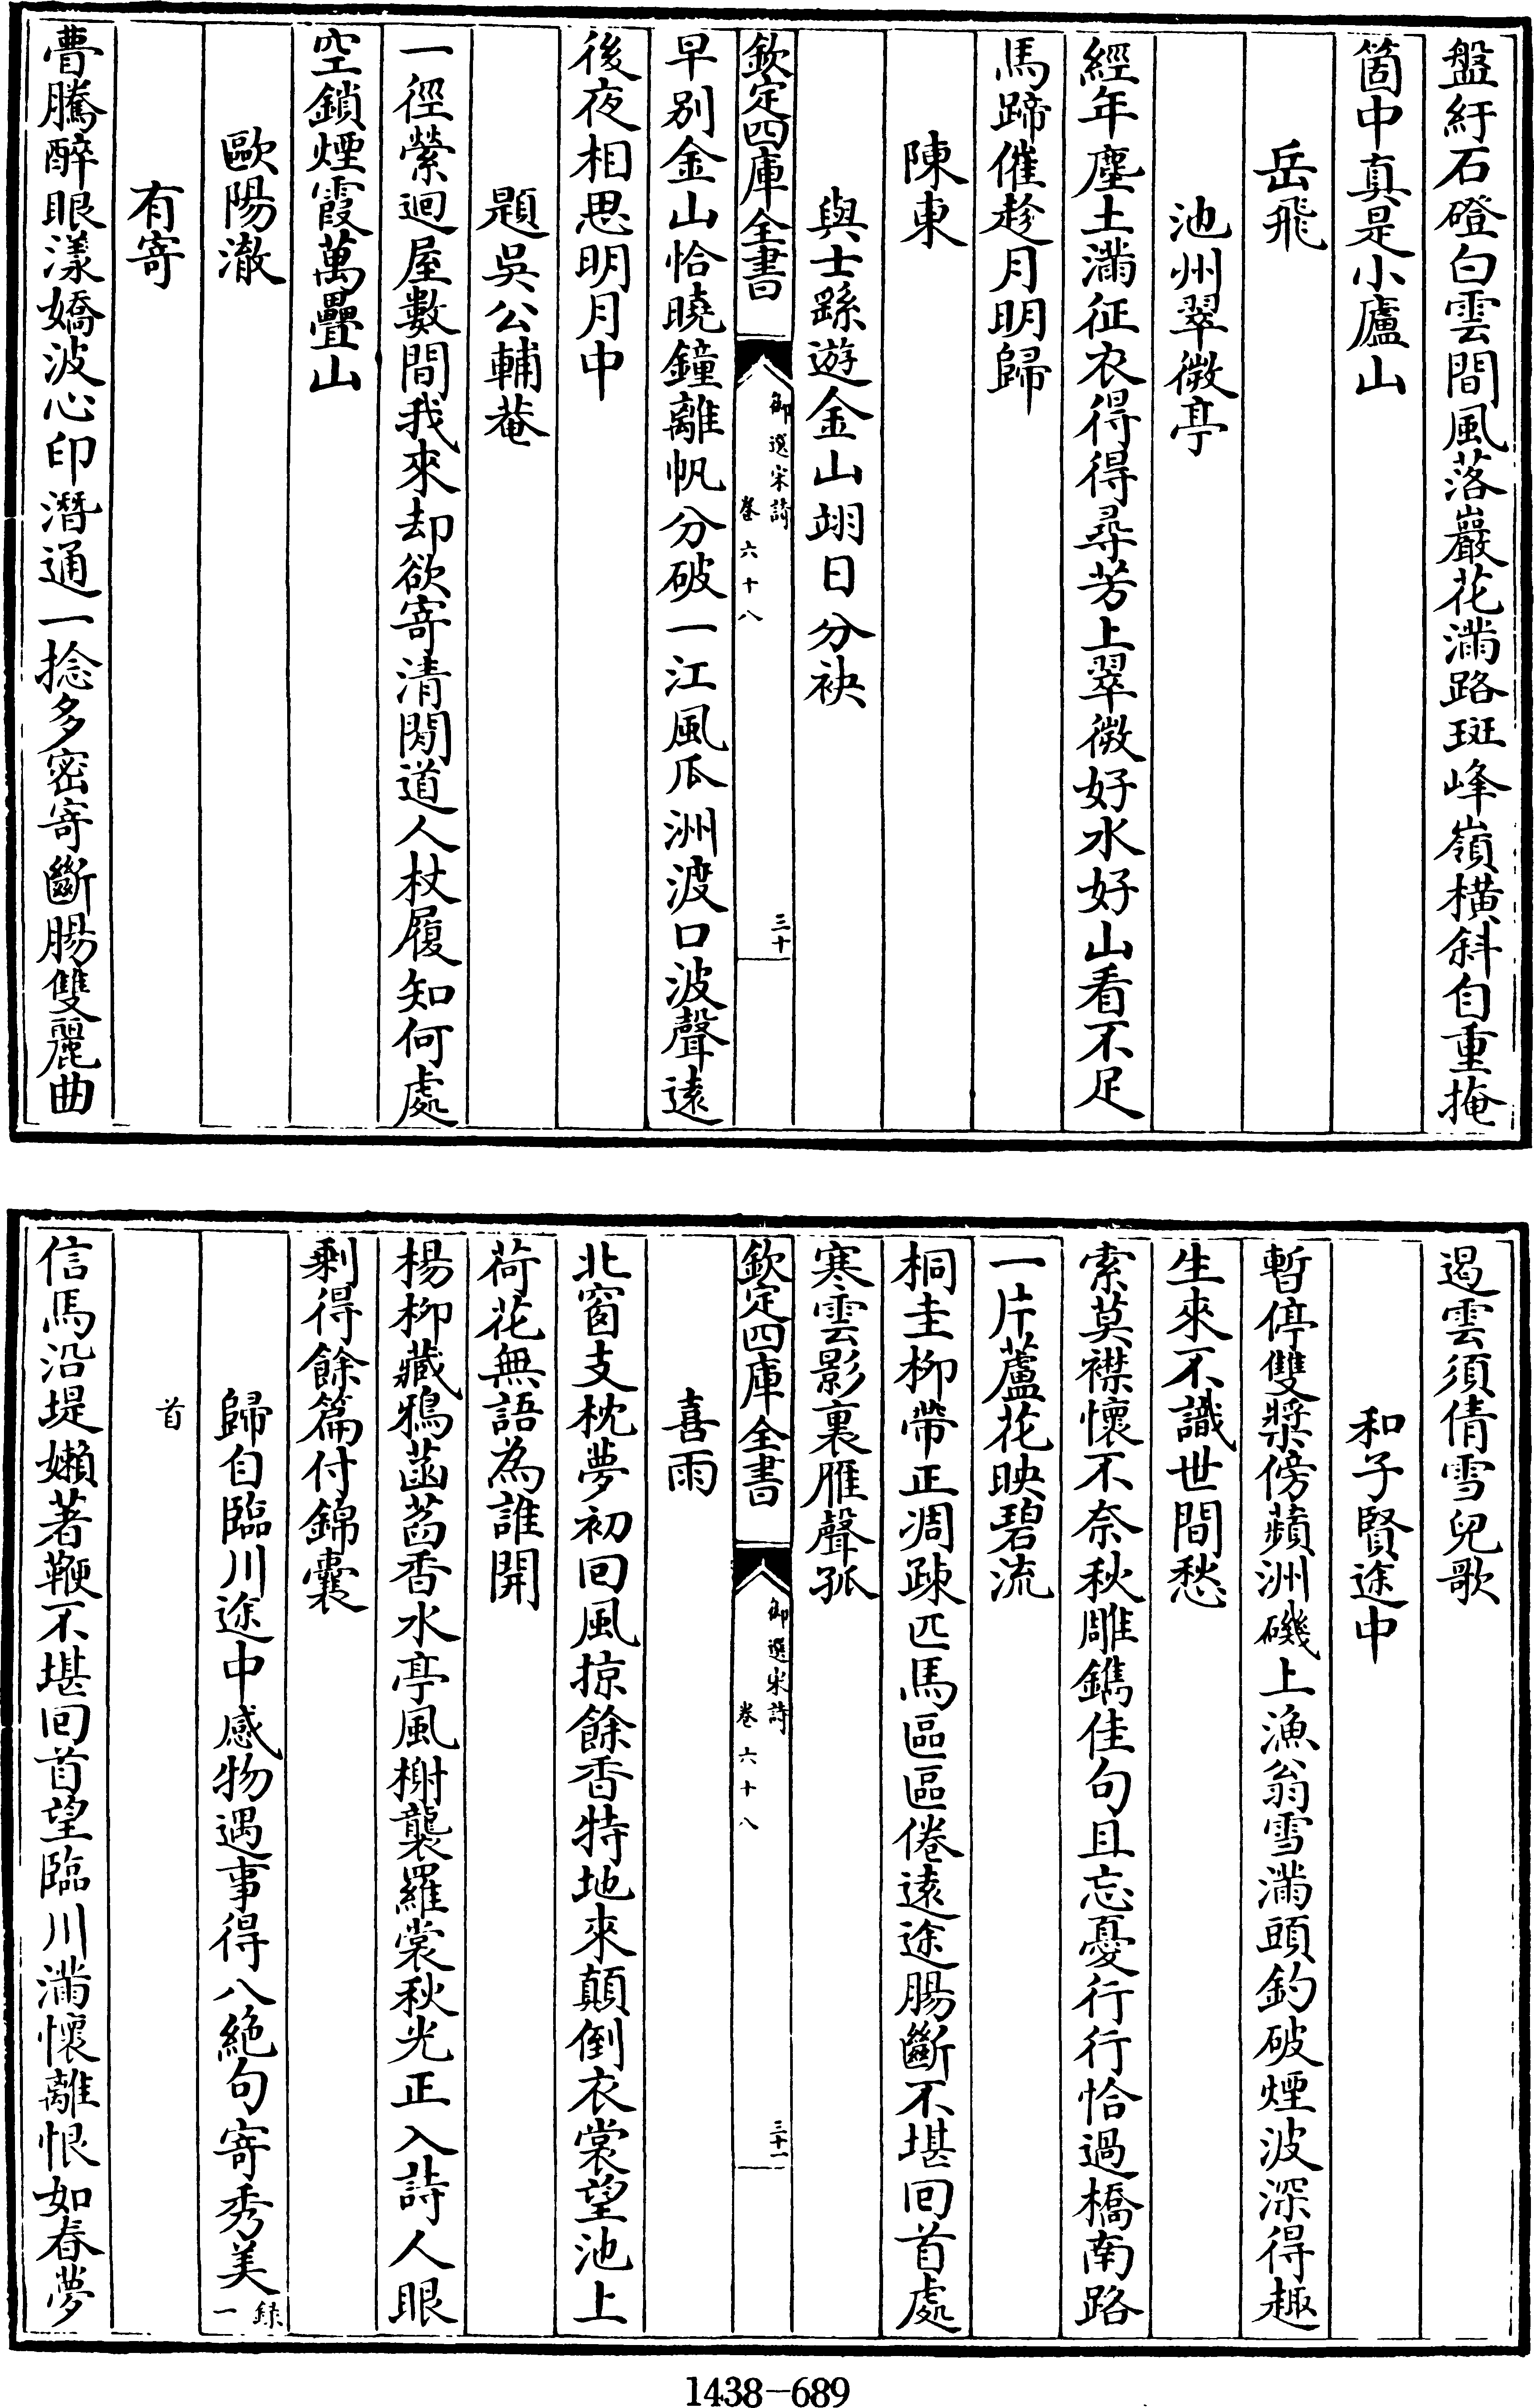 盤紆石磴白雲間風落巖花滿路斑峰嶺橫斜自重掩
箇中真是小廬山
岳飛
池州翠微亭
經年塵土滿征衣得得尋芳上翠微好水好山看不足
馬蹄催趁月明歸
陳東
與士繇遊金山翊日分袂
欽定四庫全書
御選宋詩
卷六十八
三十
早别金山恰曉鐘離帆分破一江風瓜洲渡口波聲遠
後夜相思明月中
題吳公輔菴
一徑縈迴屋數間我來却欲寄清閒道人杖履知何處
空鎖煙霞萬疊山
歐陽澈
有寄
瞢騰醉眼漾嬌波心印潛通一捻多密寄斷腸雙麗曲
遏雲須倩雪兒歌
和子賢途中
暫停雙槳傍蘋洲磯上漁翁雪滿頭釣破煙波深得趣
生來不識世間愁
索莫襟懷不奈秋雕鐫佳句且忘憂行行恰過橋南路
一片蘆花映碧流
桐圭柳帶正凋疎匹馬區區倦遠途腸斷不堪回首處
寒雲影裏雁聲孤
欽定四庫全書
御選宋詩
卷六十八
三十一
喜雨
北窗支枕夢初回風掠餘香特地來顛倒衣裳望池上
荷花無語為誰開
楊柳藏鴉菡萏香水亭風榭襲羅裳秋光正入詩人眼
剩得餘篇付錦囊
歸自臨川途中感物遇事得八絶句寄秀美録一
首
信馬沿堤嬾著鞭不堪回首望臨川滿懷離恨如春夢
1438-689